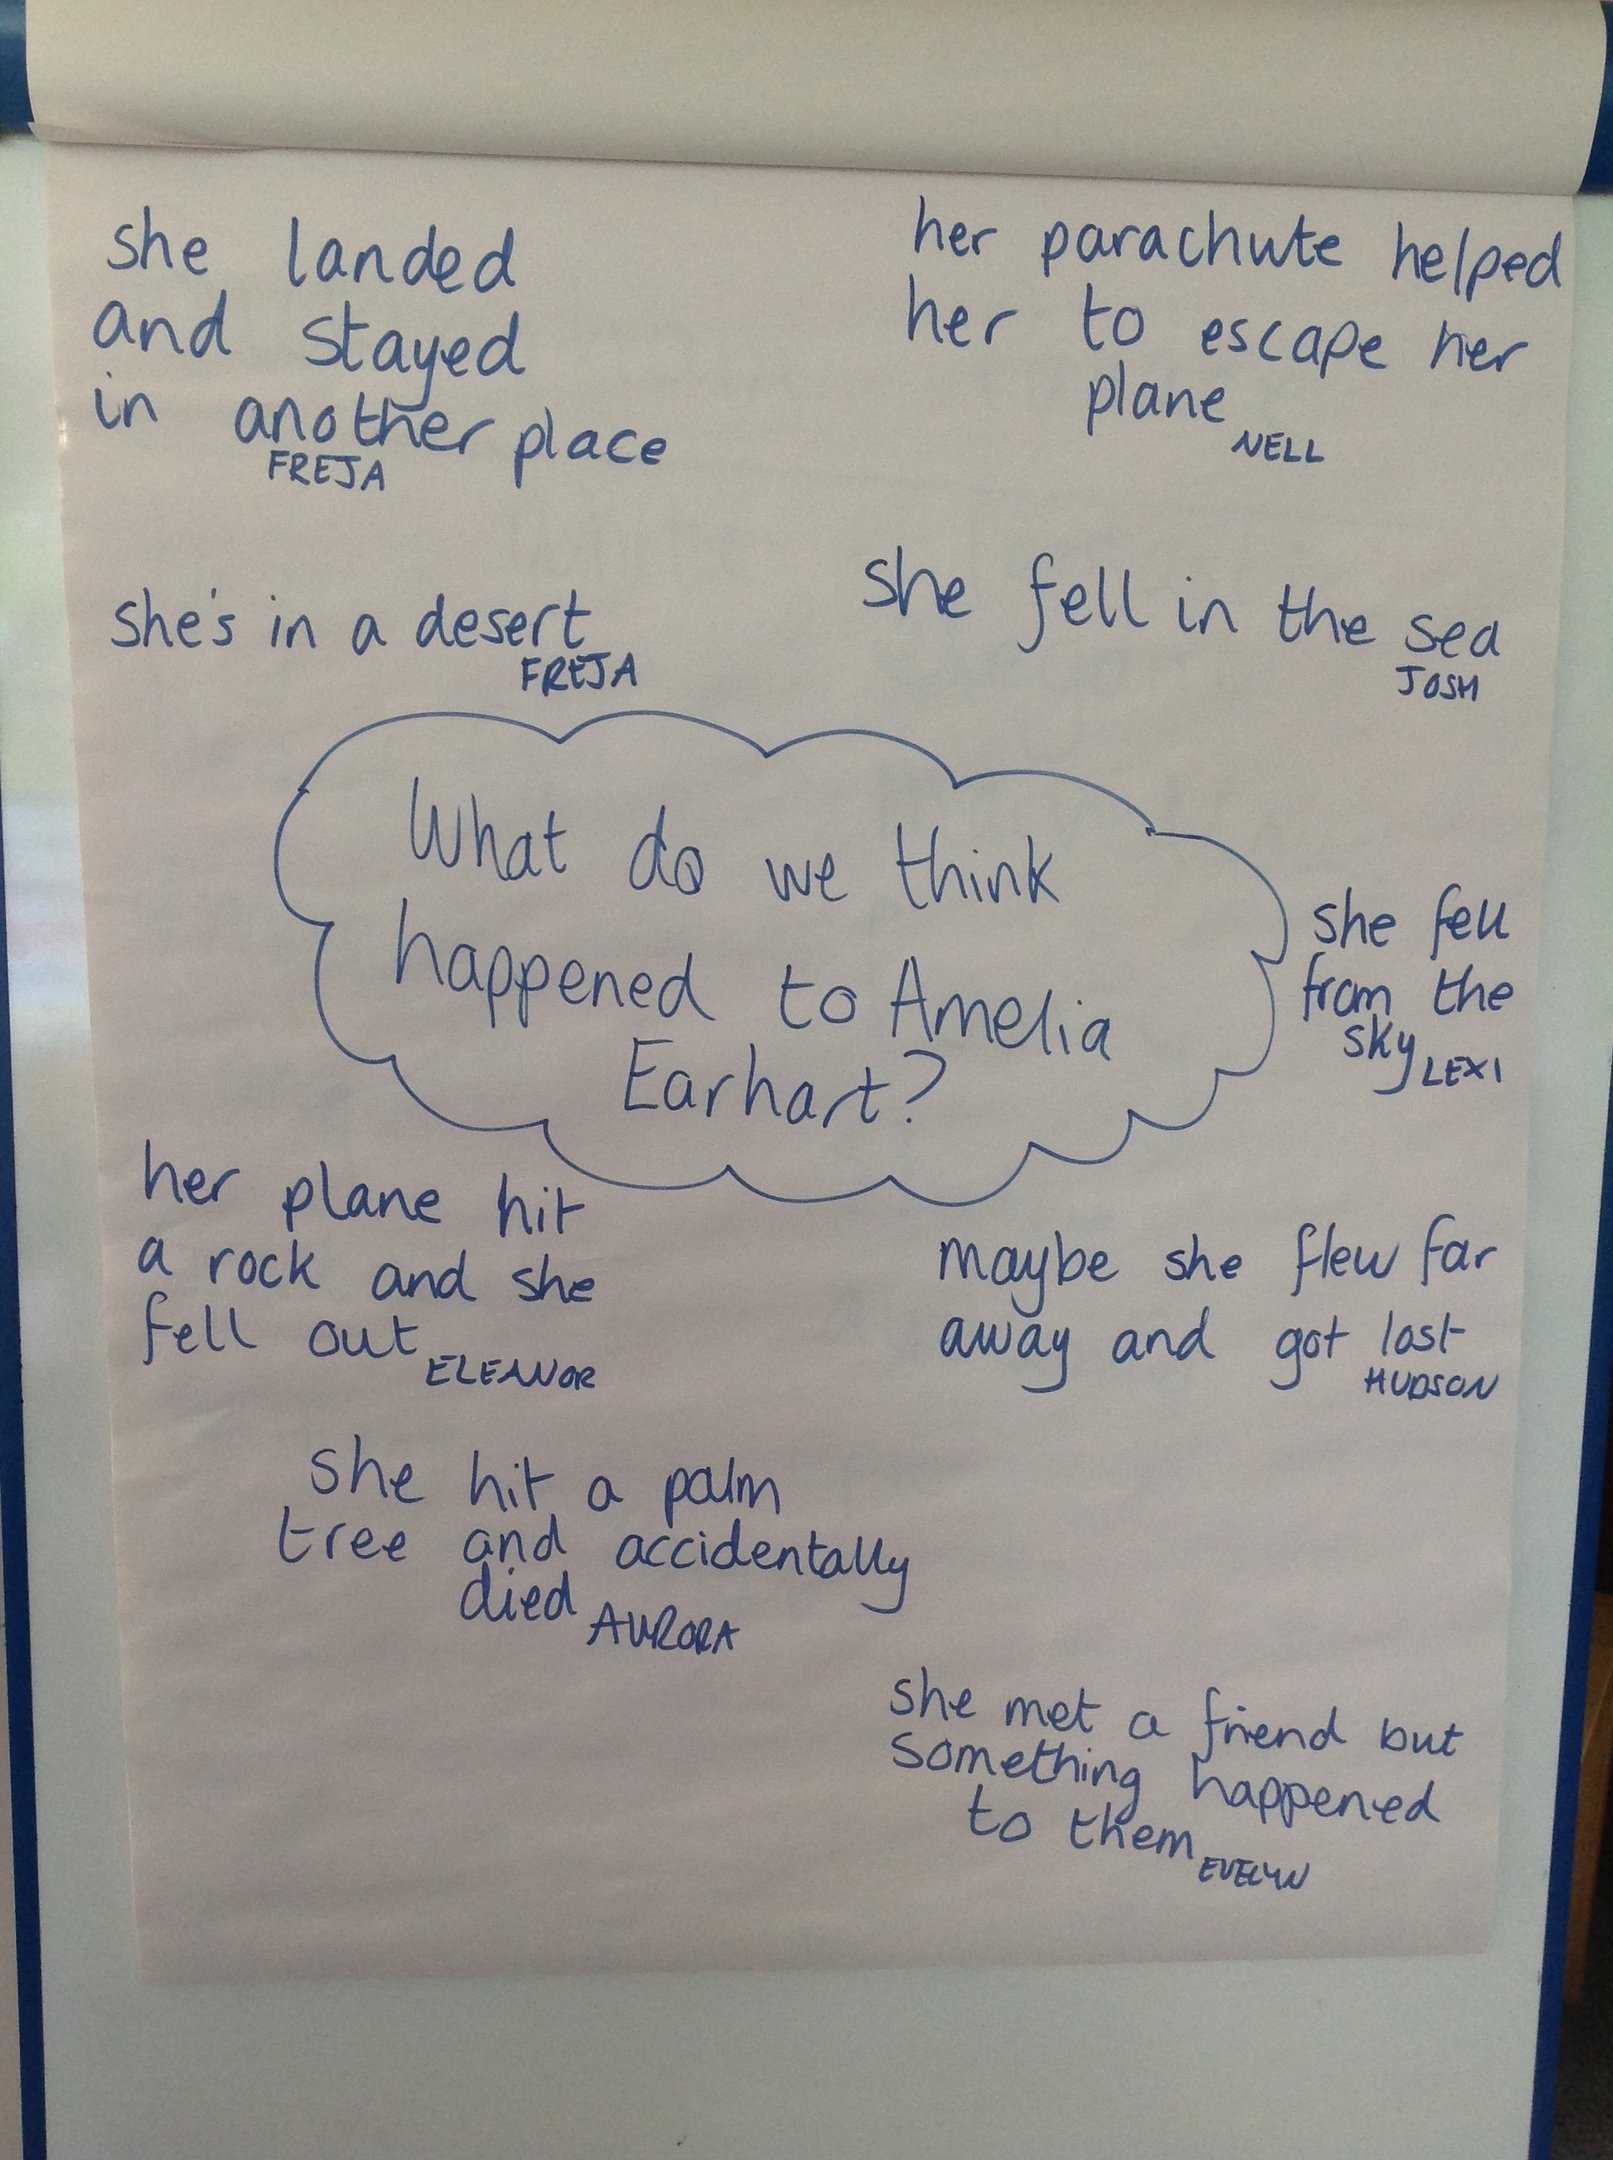 she landed
and stayed
in another place
FREJA
her parachute helped
her to escape her
plane
NELL
she's in a desert
FREJA
she fell in the sea
JOSH
What do we think
happened to Amelia
Earhart?
she fell
from the
sky
LEXI
her plane hit
a rock and she
fell out
ELEANOR
maybe she flew far
away and got lost
HUDSON
she hit a palm
tree and accidentally
died
AURORA
she met a friend but
something happened
to them
EVELYN